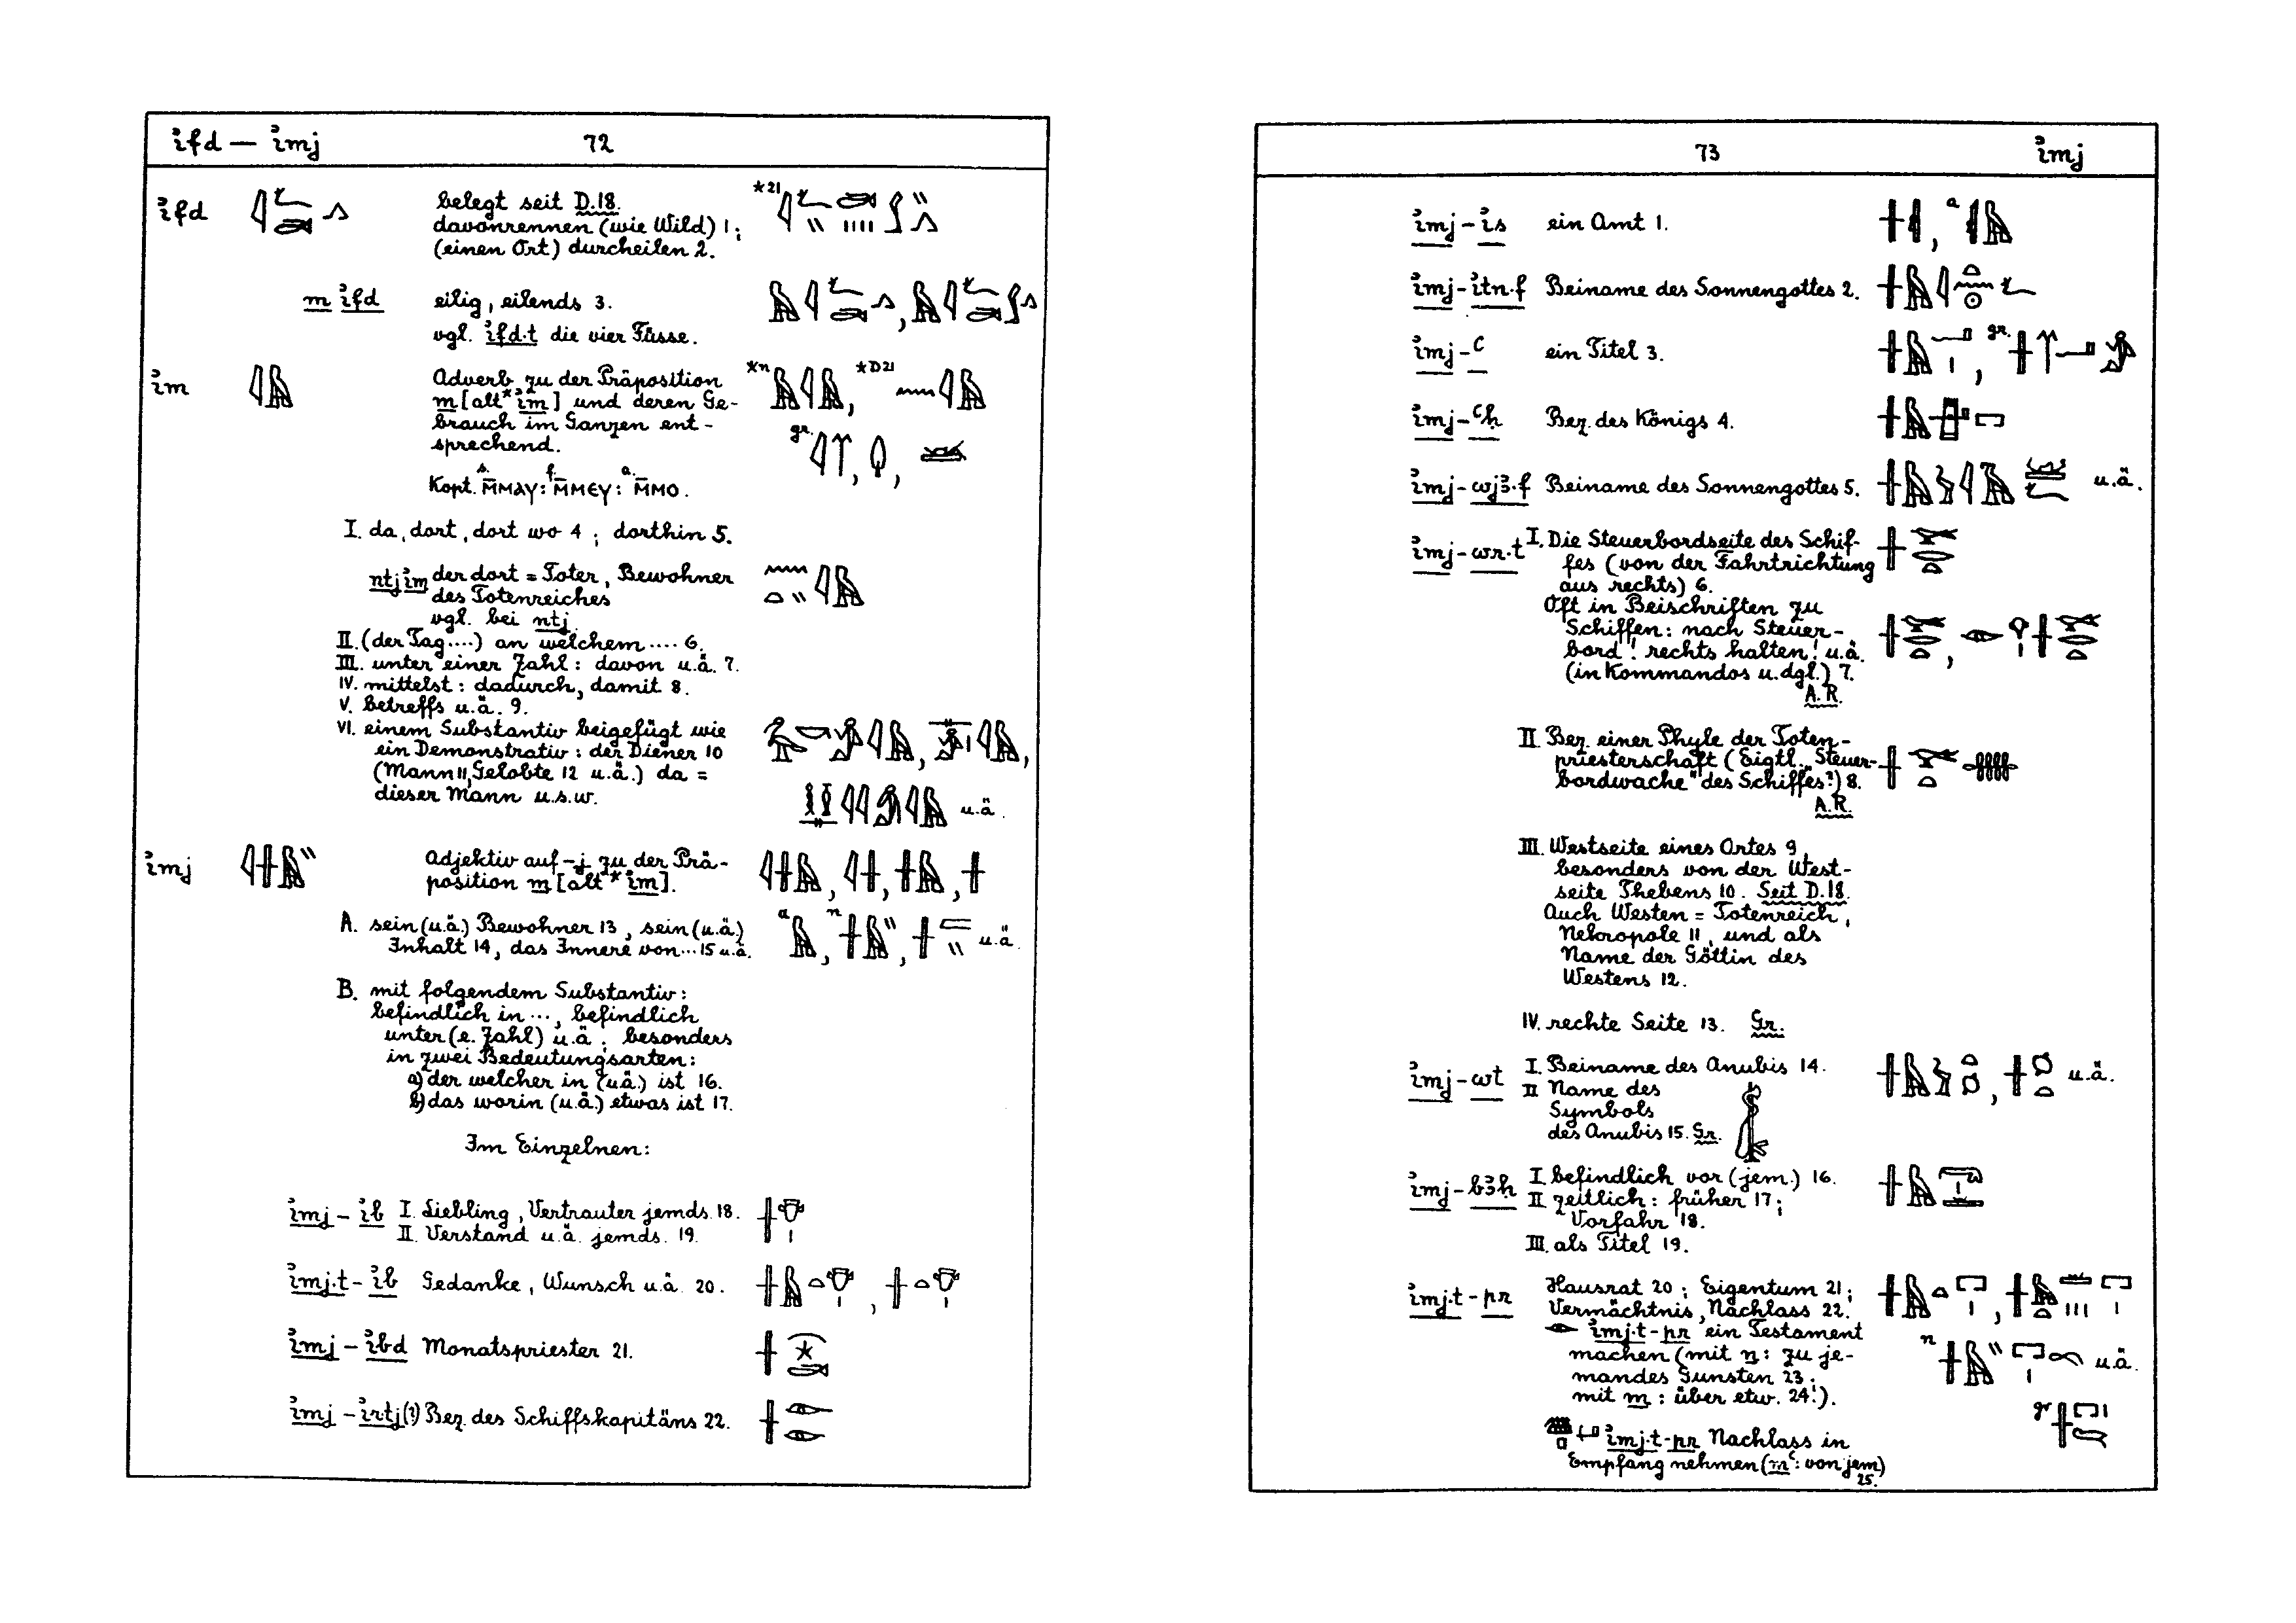 ı͗fd — ı͗mj 72
ı͗fd belegt seit D.18.
davonrennen (wie Wild) 1;
(einen Ort) durcheilen 2.
m ı͗fd eilig, eilends 3.
vgl. ı͗fd·t die vier Füsse.
ı͗m Adverb zu der Präposition
m [alt *ı͗m] und deren Ge-
brauch im Ganzen ent-
sprechend.
Kopt. s. M̄MAY: f. M̄MEY: a. M̄MO.
I. da, dort, dort wo 4; dorthin 5.
ntj ı͗m der dort = Toter, Bewohner
des Totenreiches
vgl. bei ntj.
II. (der Tag....) an welchem .... 6.
III. unter einer Zahl: davon u.ä. 7.
IV. mittelst: dadurch, damit 8.
V. betreffs u.ä. 9.
VI. einem Substantiv beigefügt wie
ein Demonstrativ: der Diener 10
(Mann 11, Gelobte 12 u.ä.) da =
dieser Mann u.s.w. u.ä.
ı͗mj Adjektiv auf -j zu der Prä-
position m [alt *ı͗m].
A. sein (u.ä.) Bewohner 13, sein (u.ä.)
Inhalt 14, das Innere von ... 15 u.ä. u.ä.
B. mit folgendem Substantiv:
befindlich in ..., befindlich
unter (e. Zahl) u.ä.; besonders
in zwei Bedeutungsarten:
a) der welcher in (u.ä.) ist 16.
b) das worin (u.ä.) etwas ist 17.
Im Einzelnen:
ı͗mj - ı͗b I. Liebling, Vertrauter jemds. 18.
II. Verstand u.ä. jemds. 19.
ı͗mj·t - ı͗b Gedanke, Wunsch u.ä. 20.
ı͗mj - ı͗bd Monatspriester 21.
ı͗mj - ı͗rtj(?) Bez. des Schiffskapitäns 22.
73 ı͗mj
ı͗mj - ı͗s ein Amt 1.
ı͗mj - ı͗tn·f Beiname des Sonnengottes 2.
ı͗mj - ꜥ ein Titel 3.
ı͗mj - ꜥḥ Bez. des Königs 4.
ı͗mj - wjꜣ·f Beiname des Sonnengottes 5. u.ä.
ı͗mj - wr·t I. Die Steuerbordseite des Schif-
fes (von der Fahrtrichtung
aus rechts) 6.
Oft in Beischriften zu
Schiffen: nach Steuer-
bord! rechts halten! u.ä.
(in Kommandos u. dgl.) 7.
A.R.
II. Bez. einer Phyle der Toten-
priesterschaft (Eigtl. „Steuer-
bordwache" des Schiffes?) 8.
A.R.
III. Westseite eines Ortes 9,
besonders von der West-
seite Thebens 10. Seit D.18.
Auch Westen = Totenreich,
Nekropole 11, und als
Name der Göttin des
Westens 12.
IV. rechte Seite 13. Gr.
ı͗mj - wt I. Beiname des Anubis 14. u.ä.
II. Name des
Symbols
des Anubis 15. Gr.
ı͗mj - bꜣḥ I. befindlich vor (jem.) 16.
II. zeitlich: früher 17;
Vorfahr 18.
III. als Titel 19.
ı͗mj·t - pr Hausrat 20; Eigentum 21;
Vermächtnis, Nachlass 22.
ı͗mj·t - pr ein Testament
machen (mit n: zu je- u.ä.
mandes Gunsten 23;
mit m: über etw. 24!).
ı͗mj·t - pr Nachlass in
Empfang nehmen (mꜥ: von jem)
25.